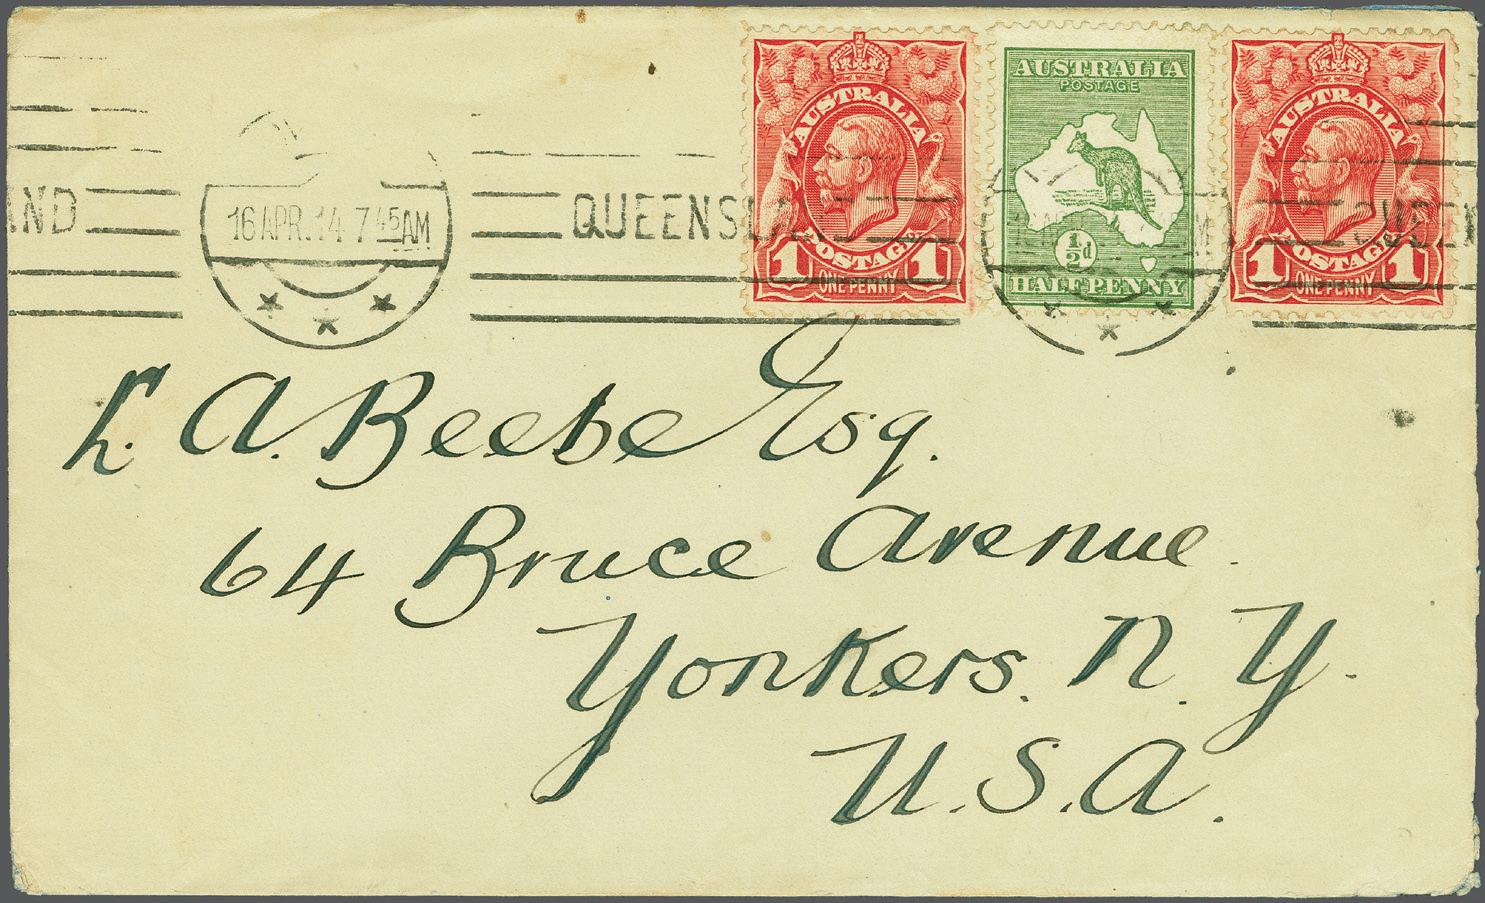 AUSTRALIA
POSTAGE
1 ONE PENNY 1
AUSTRALIA
POSTAGE
½d
HALFPENNY
AUSTRALIA
POSTAGE
1 ONE PENNY 1
AND
16 APR. 14 7 45 AM
QUEENSLAND
QUEEN
A. Beebe Esq.
64 Bruce Avenue.
Yonkers. N. Y.
U.S.A.